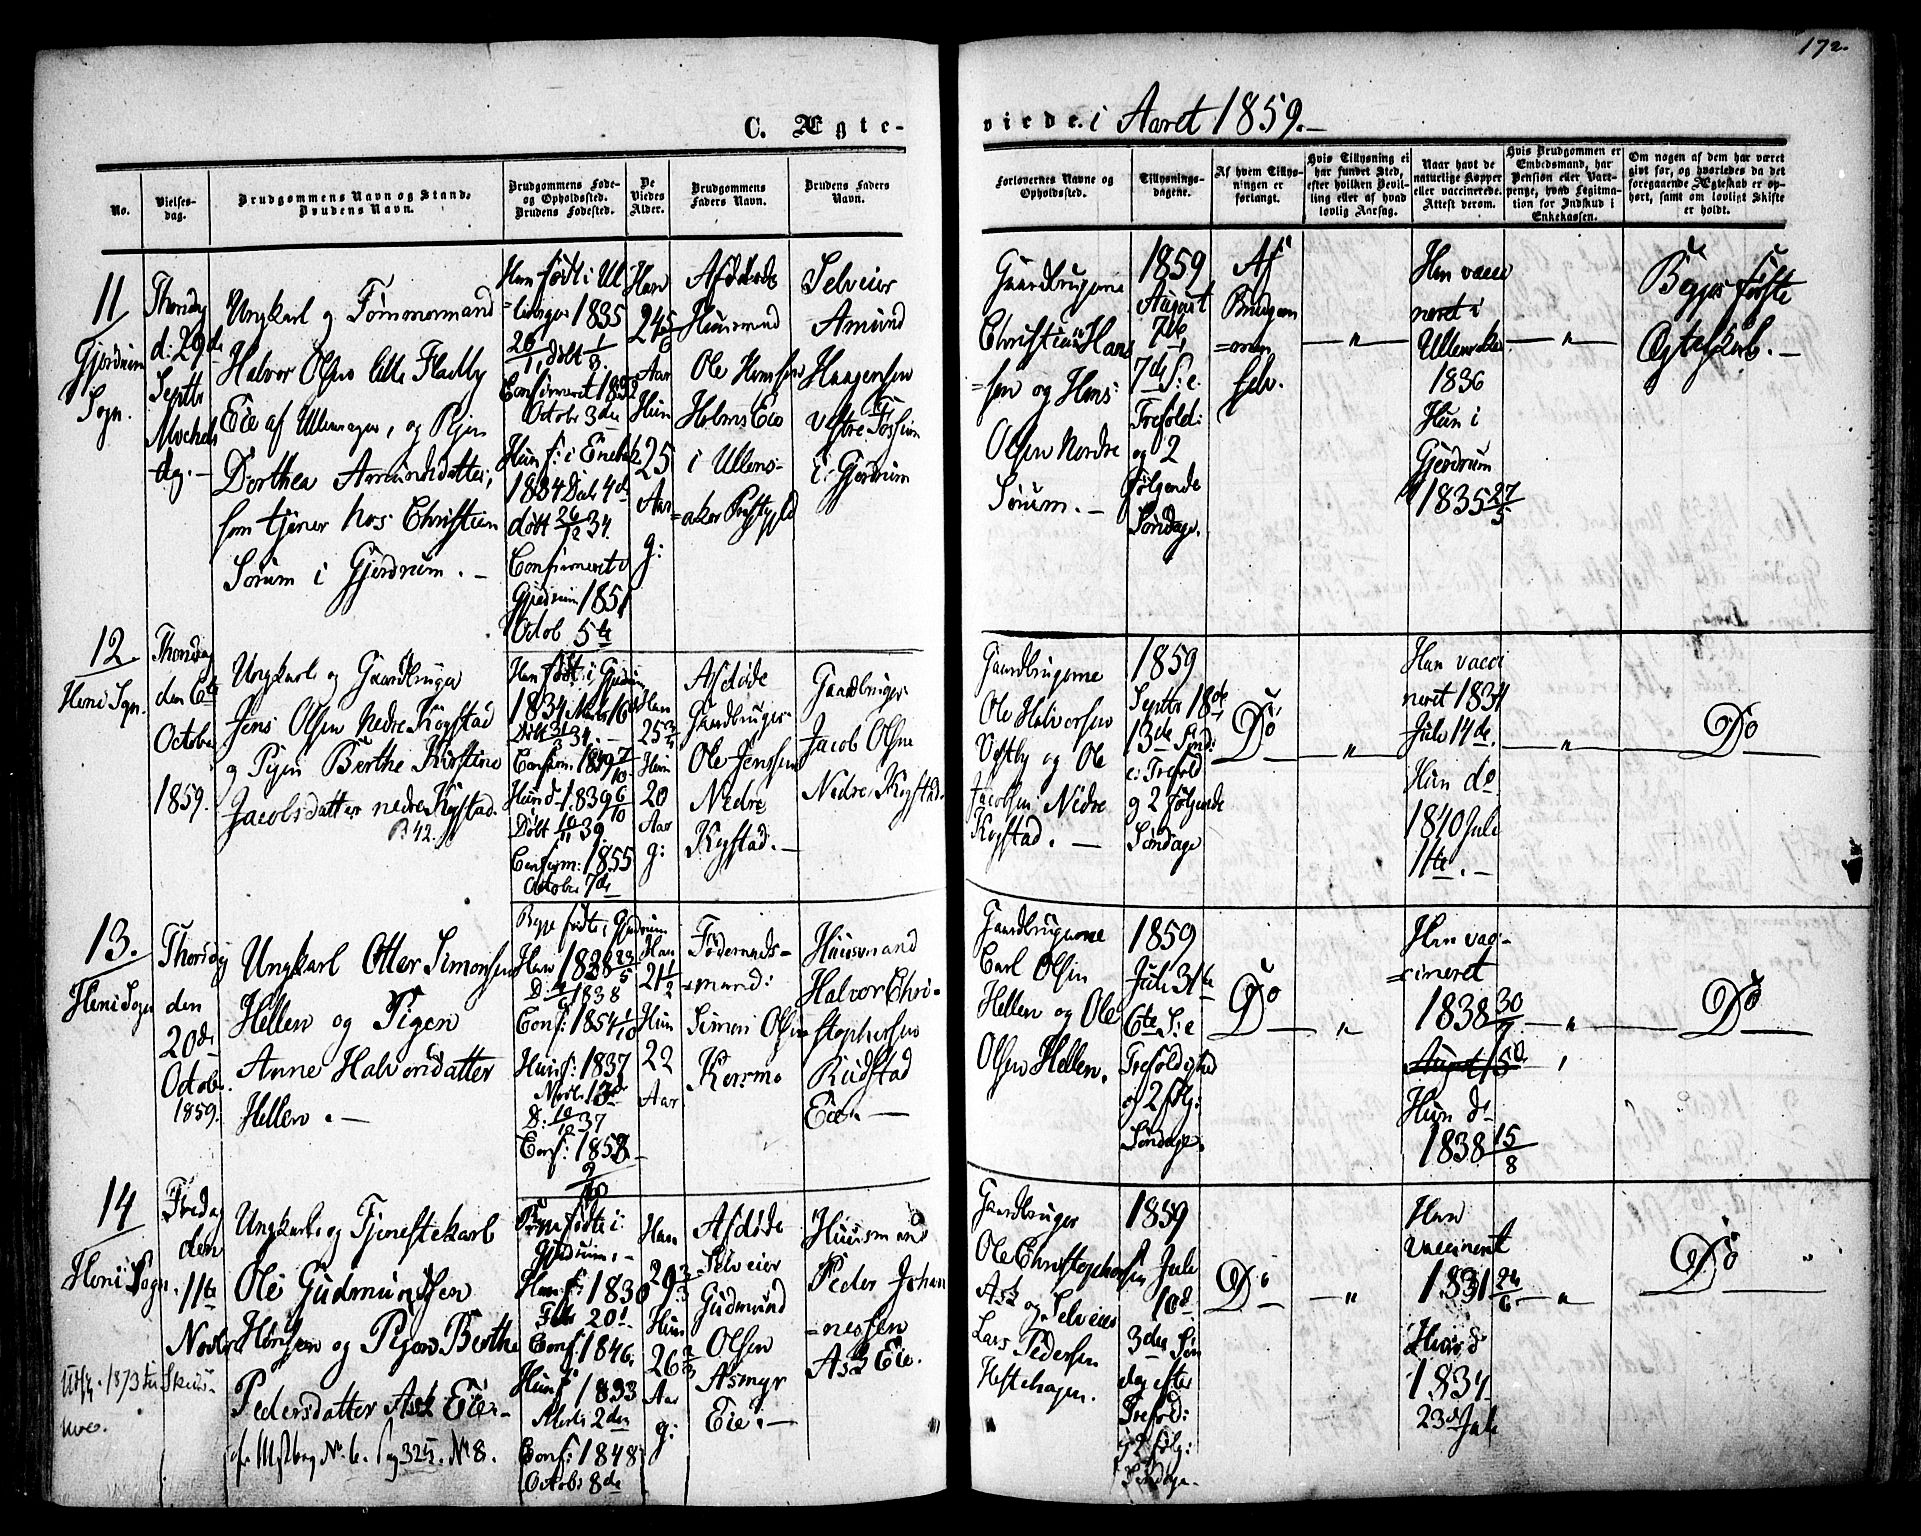 172.
C. Ægte-
viede. i Aaret 1859.
No.
Vielses-
dag.
Brudgommens Navn og Stand.
Brudens Navn.
Brudgommens Føde-
og Opholdssted.
Brudens Fødested.
De
Viedes
Alder.
Brudgommens
Faders Navn.
Brudens Faders
Navn.
Forlovernes Navne og
Opholdssted.
Tillysnings-
dagene.
Af hvem Tillys-
ningen er
forlangt.
Hvis Tillysning ei
har fundet Sted,
efter hvilken Bevil-
ling eller af hvad
lovlig Aarsag.
Naar havt de
naturlige Kopper
eller vaccinerede.
Attest derom.
Hvis Brudgommen er
Embedsmand, har
Pension eller Vart-
penge, hvad Legitima-
tion for Indskud i
Enkekassen.
Om nogen af dem har været
gift før, og hvorledes da det
foregaaende Ægteskab er op-
hørt, samt om lovligt Skifte
er holdt.
11
Gjerdrum
Sogn.
Thorsdag
d: 29de
Septbr
Michels
dag.
Ungkarl og Tømmermand
Halvor Olsen lille Fladby
Eie af Ullensager, og Pigen
Dorthea Amundsdatter,
som tjener hos Christian
Sørum i Gjerdrum.
Han født i Ul
lensager 1835
26/11, døbt 1/3
Confirmeret 1852
Octobr 3de
Hun f: i Enebak
1834 Decbr 4de
døbt 26/12 34.
Confirmeret i
Gjerdrum 1851
Octob 5te
Han
24
Aar
Hun
25
Aar
g:
Afdøde
Huusmand
Ole Hansen
Holms Eie
i Ullens-
aker Præstegjeld
Selveier
Amund
Haagensen
Vestre Fossum
i Gjerdrum
Gaardbrugerne
Christian Hans
sen og Hans
Olsen Nordre
Sørum.
1859
August
7de S: e:
Trefold:
og 2
følgende
Søndage.
Af
Brudgom
men
selv.
Han vacci
neret i
Ullensaker
1836
Hun i
Gjerdrum
1835 27/5
Begges første
Ægteskab.
12
Heni Sogn.
Thorsdag
den 6te
October
1859.
Ungkarl og Gaardbruger
Jens Olsen Nedre Kogstad
og Pigen Berthe Kirstine
Jacobsdatter nedre Kogstad.
Han født i Gjerdrum
1834 16de
Døbt 34.
Confirm:
Hun d 1839 6/10
Døbt 10/11 39.
Confirm: 1855
October 7de
Han
25 3/4
Hun
20
Aar
g:
Afdøde
Gaardbruger
Ole Jenssen
Nedre
Kogstad.
Gaardbruger
Jacob Olsen
Nedre Kogstad.
Gaardbrugerne
Ole Halvorsen
Vestby og Ole
Jacobsen Nedre
Kogstad.
1859
Septbr 18de
13de Sønd:
e: Trefold
og 2 følgende
Søndage
Do
Han vacci
neret 1834
Juli 14de.
Hun do
1840 Juli
1te.
Do
13.
Heni Sogn
Thorsdag
den
20de
Octobr.
1859.
Ungkarl Otter Simonsen
Hellen og Pigen
Anne Halvorsdatter
Hellen.
Begge født i Gjerdrum
Han 1838 23/5
D: 1838
Conf: 1854 1/10
Hun f: 1837
Novbr 13de
D: 10/12 37
Conf:
Han
21 1/2
Hun
22
Aar
Føderaads-
mand:
Simen Olsen
Korsmo
Huusmand
Halvor Chri-
stophersen
Rudstad
Eie.
Gaardbrugerne
Carl Olsen
Hellen og Ole
Olsen Hellen.
1859
Juli 31te
6te S: e
Trefoldighed
og 2 følg:
Søndage.
Do
Han vac-
cineret
1838 30/7
Hun d
1838 15/8
Do
14
Heni Sogn.
Fredag
den
11te
Novbr
Ungkarl og Tjenestekarl
Ole Gudmundsen
og Pigen Berthe
Pedersdatter Ask Eie.
Begge fødte i
Gjerdrum.
Han f: 1830
Febr 20
Conf: 1846.
Hun f 1833
Marts 2den
Conf: 1848
Octobr 8de
Han
29
Hun
26
Aar
g:
Afdøde
Selveier
Gudmund
Olsen
Asmyr
Eie.
Huusmand
Peder Johan
nessen
Ask Eie.
Gaardbruger
Ole Christophersen
Ask og Selveier
Lars Pedersen
Hestehagen.
1859
Juli
10d
3die Søn
dag efter
Trefold:
og 2 følg:
Søndage.
Do
Han
vaccineret
1831
Hun d
1834
23d Juli
Do